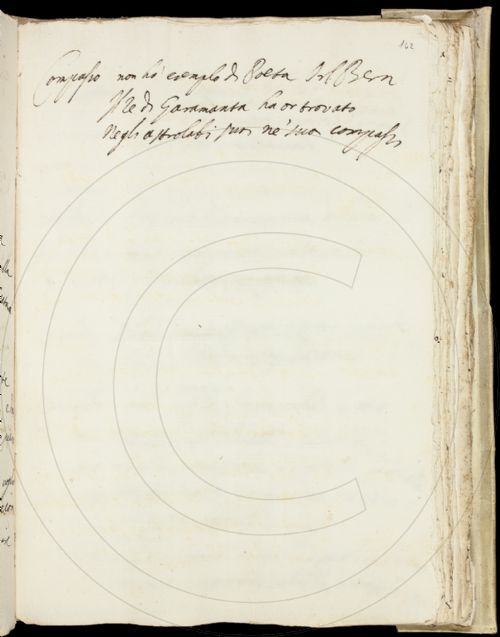 162
Compasso non hò esempio di Poeta Orl Bern
Il Re di Garamanta ha or trovato
Negli astrolabi suoi ne' suoi compassi